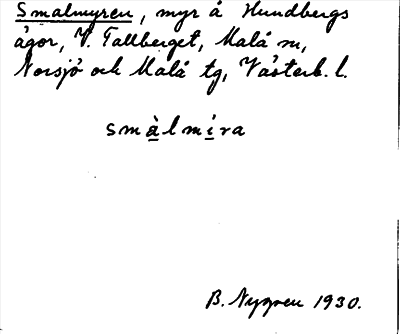 Smalmyren, myr å Hundbergs
ägor, V. Tallberget, Malå sn,
Norsjö och Malå tg, Västerb. l.
smàlmira
B. Nygren 1930.